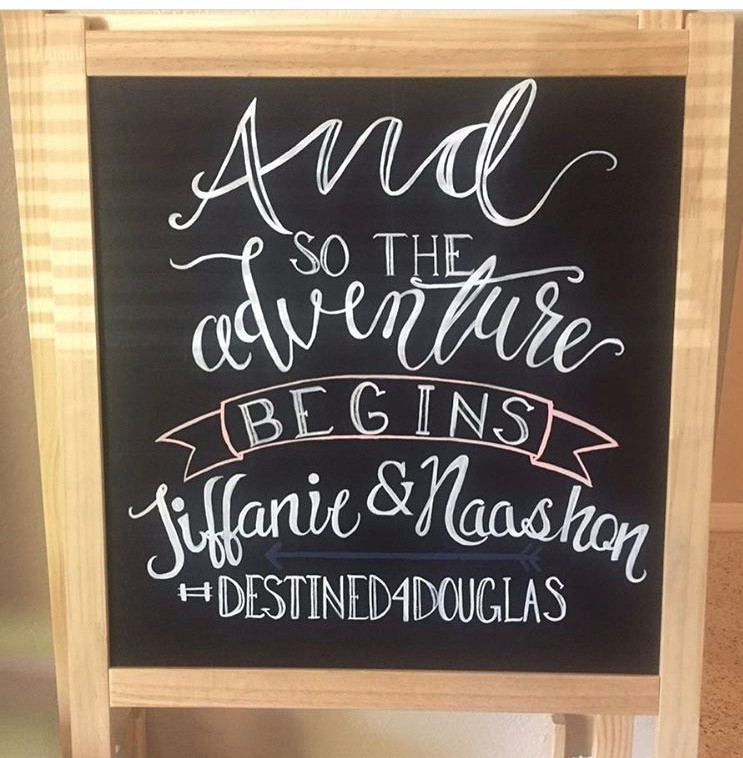 And
SO THE
adventure
BEGINS
Tiffanie & Naashon
#DESTINED4DOUGLAS